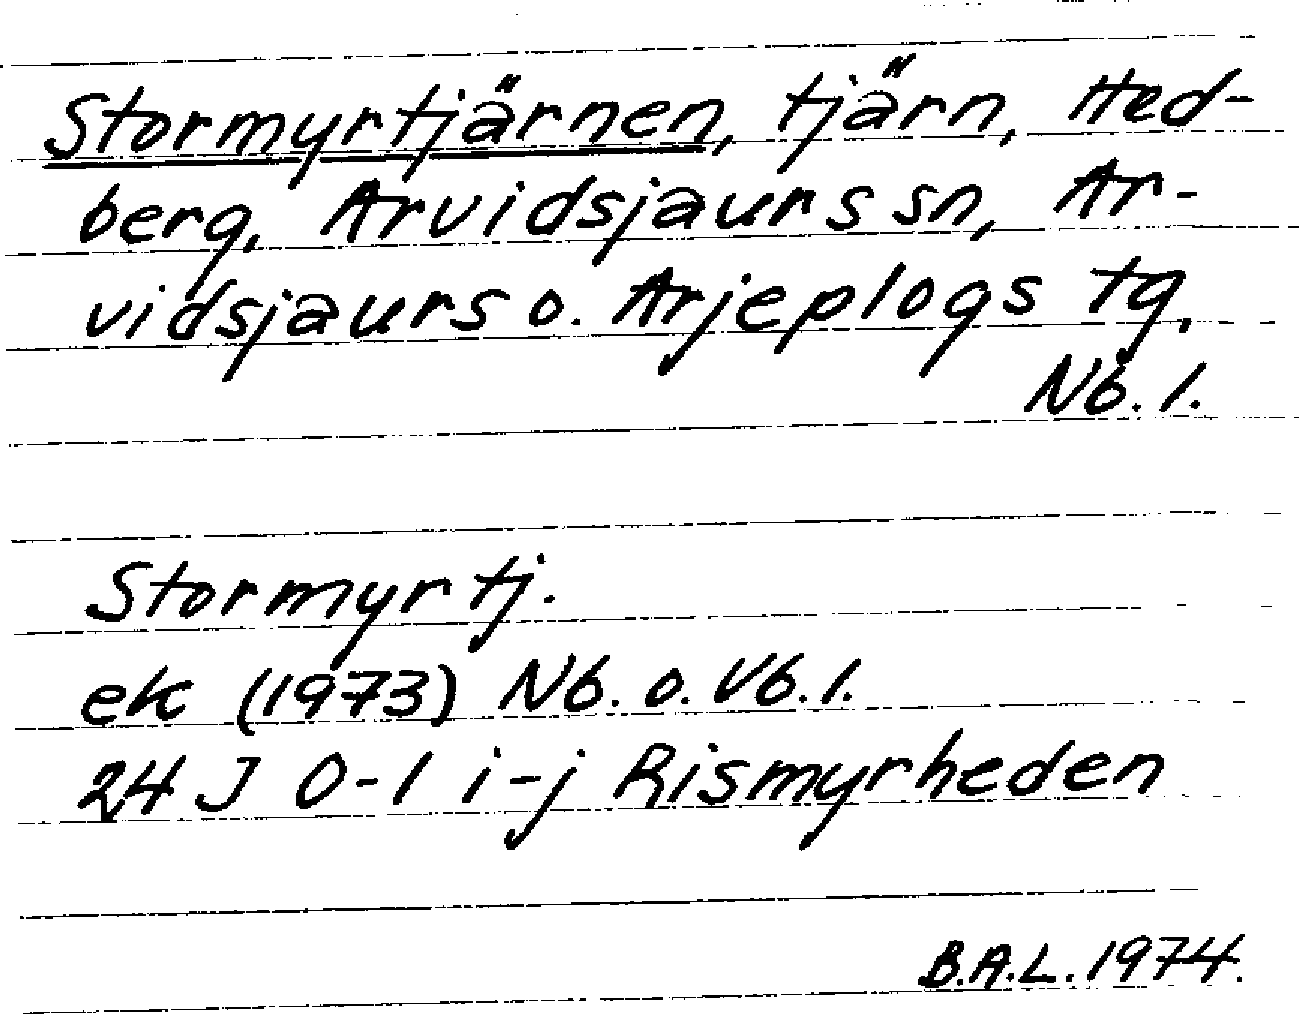 Stormyrtjärnen, tjärn, Hed-
berg, Arvidsjaurs sn, Ar-
vidsjaurs o. Arjeplogs tg,
Nb. l.
Stormyrtj.
ek (1973) Nb. o. Vb. l.
24 J 0-1 i-j Rismyrheden
B.A.L. 1974.